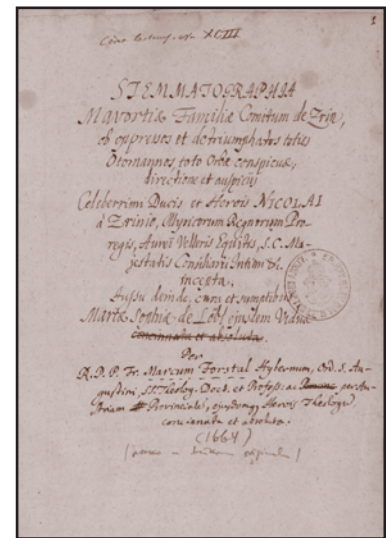 1
XCIII
STEMMATOGRAPHIA
Mavortiæ Familiæ Comitum de Zrin,
ob oppressos et detriumphatos toties
Otomannos, toto Orbe conspicuæ,
directione et auspicijs
Celeberrimi Ducis et Herois NICOLAI
à Zrinio, Illyricorum Regnorum Pro-
regis, Aurei Velleris Equitis, S. C. Ma-
jestatis Consiliarii Intimi &c.
incepta.
Jussu deinde, cura et sumptibus
Mariæ Sophiæ de Löbl ejusdem Viduæ
concinnata et absoluta.
Per
R. D. P. Fr. Marcum Forstal Hybernum, Ord. S. Au-
gustini, SS. Theolog. Doct. et Profess. ac Romanæ per Au-
striam Provincialē, ejusdemq. Herois Theologū
concinnata et absoluta.
(1664)